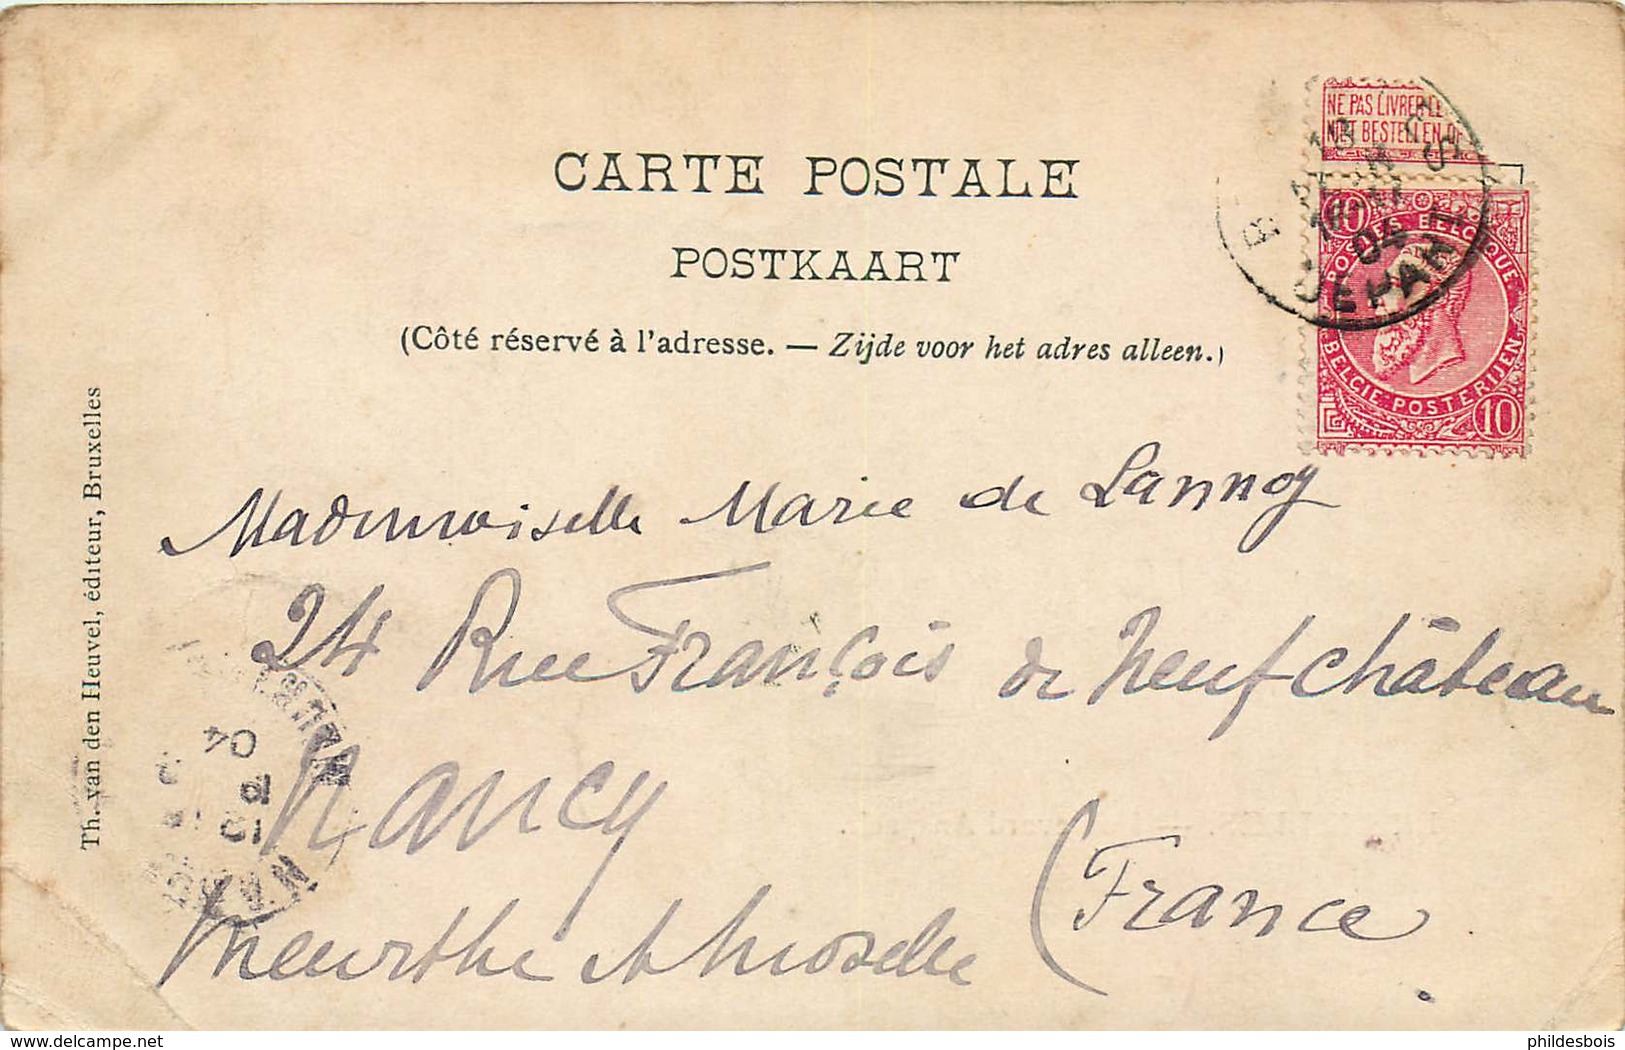 CARTE POSTALE
POSTKAART
(Côté réservé à l'adresse. — Zijde voor het adres alleen.)
NE PAS LIVRER LE
NIET BESTELLEN
10
POSTES BELGIQUE
BELGIE POSTERIJEN
10
04
DEPART
Mademoiselle Marie de Lannoy
24 Rue François de Neufchâteau
Nancy
Meurthe et Moselle (France
04
Th. van den Heuvel, éditeur, Bruxelles
delcampe.net
phildesbois